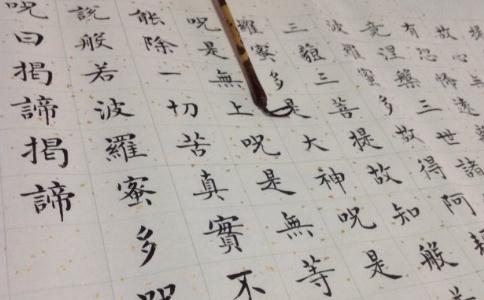 有恐怖遠
竟涅槃三世諸
波羅蜜多故得阿
三藐三菩提故知般
羅蜜多是大神呪是
呪是無上呪是無等
能除一切苦真實不
說般若波羅蜜多
呪曰揭諦揭諦